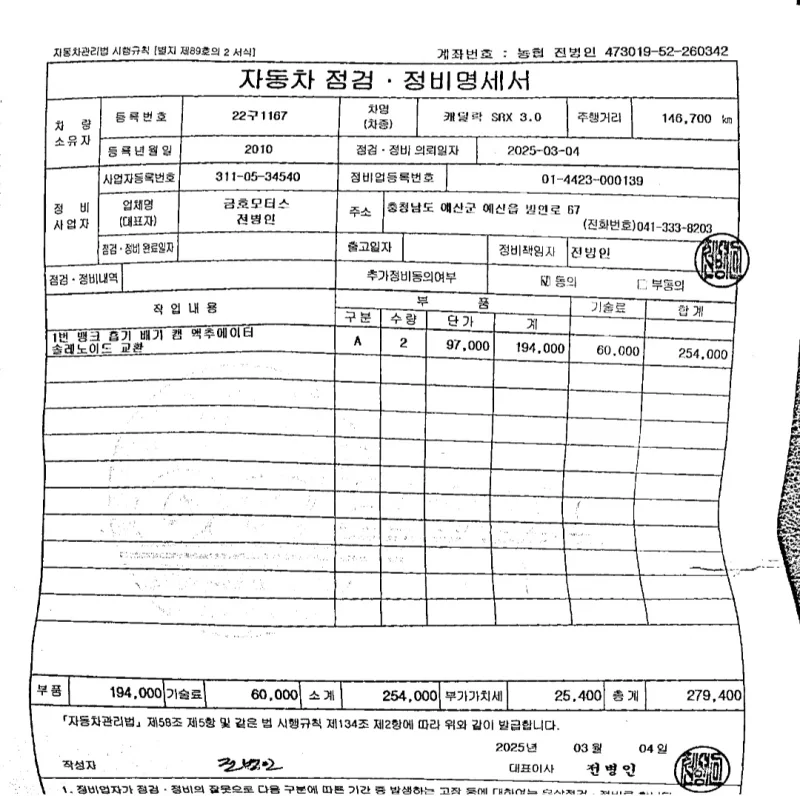 자동차관리법 시행규칙 [별지 제89호의 2 서식]
계좌번호 : 농협 전병인 473019-52-260342
자동차 점검 · 정비명세서
차 량 소유자
등록번호 22구1167 차명 (차종) 캐딜락 SRX 3.0 주행거리 146,700 km
등록년월일 2010 점검 · 정비 의뢰일자 2025-03-04
정 비 사업자
사업자등록번호 311-05-34540 정비업등록번호 01-4423-000139
업체명 (대표자) 금호모터스 전병인 주소 충청남도 예산군 예산읍 벚꽃로 67
(전화번호)041-333-8203
점검 · 정비 완료일자 출고일자 정비책임자 전병인
점검 · 정비내역 추가정비동의여부 ☑ 동의 □ 부동의
작 업 내 용 부 품 기술료 합 계
구분 수량 단가 계
1번 뱅크 흡기 배기 캠 액추에이터
솔레노이드 교환 A 2 97,000 194,000 60,000 254,000
부품 194,000 기술료 60,000 소 계 254,000 부가가치세 25,400 총 계 279,400
「자동차관리법」 제58조 제5항 및 같은 법 시행규칙 제134조 제2항에 따라 위와 같이 발급합니다.
2025년 03 월 04 일
작성자 전병인 대표이사 전병인
1. 정비업자가 점검 · 정비의 잘못으로 다음 구분에 따른 기간 중 발생하는 고장 등에 대하여는 무상점검 · 정비를 합니다